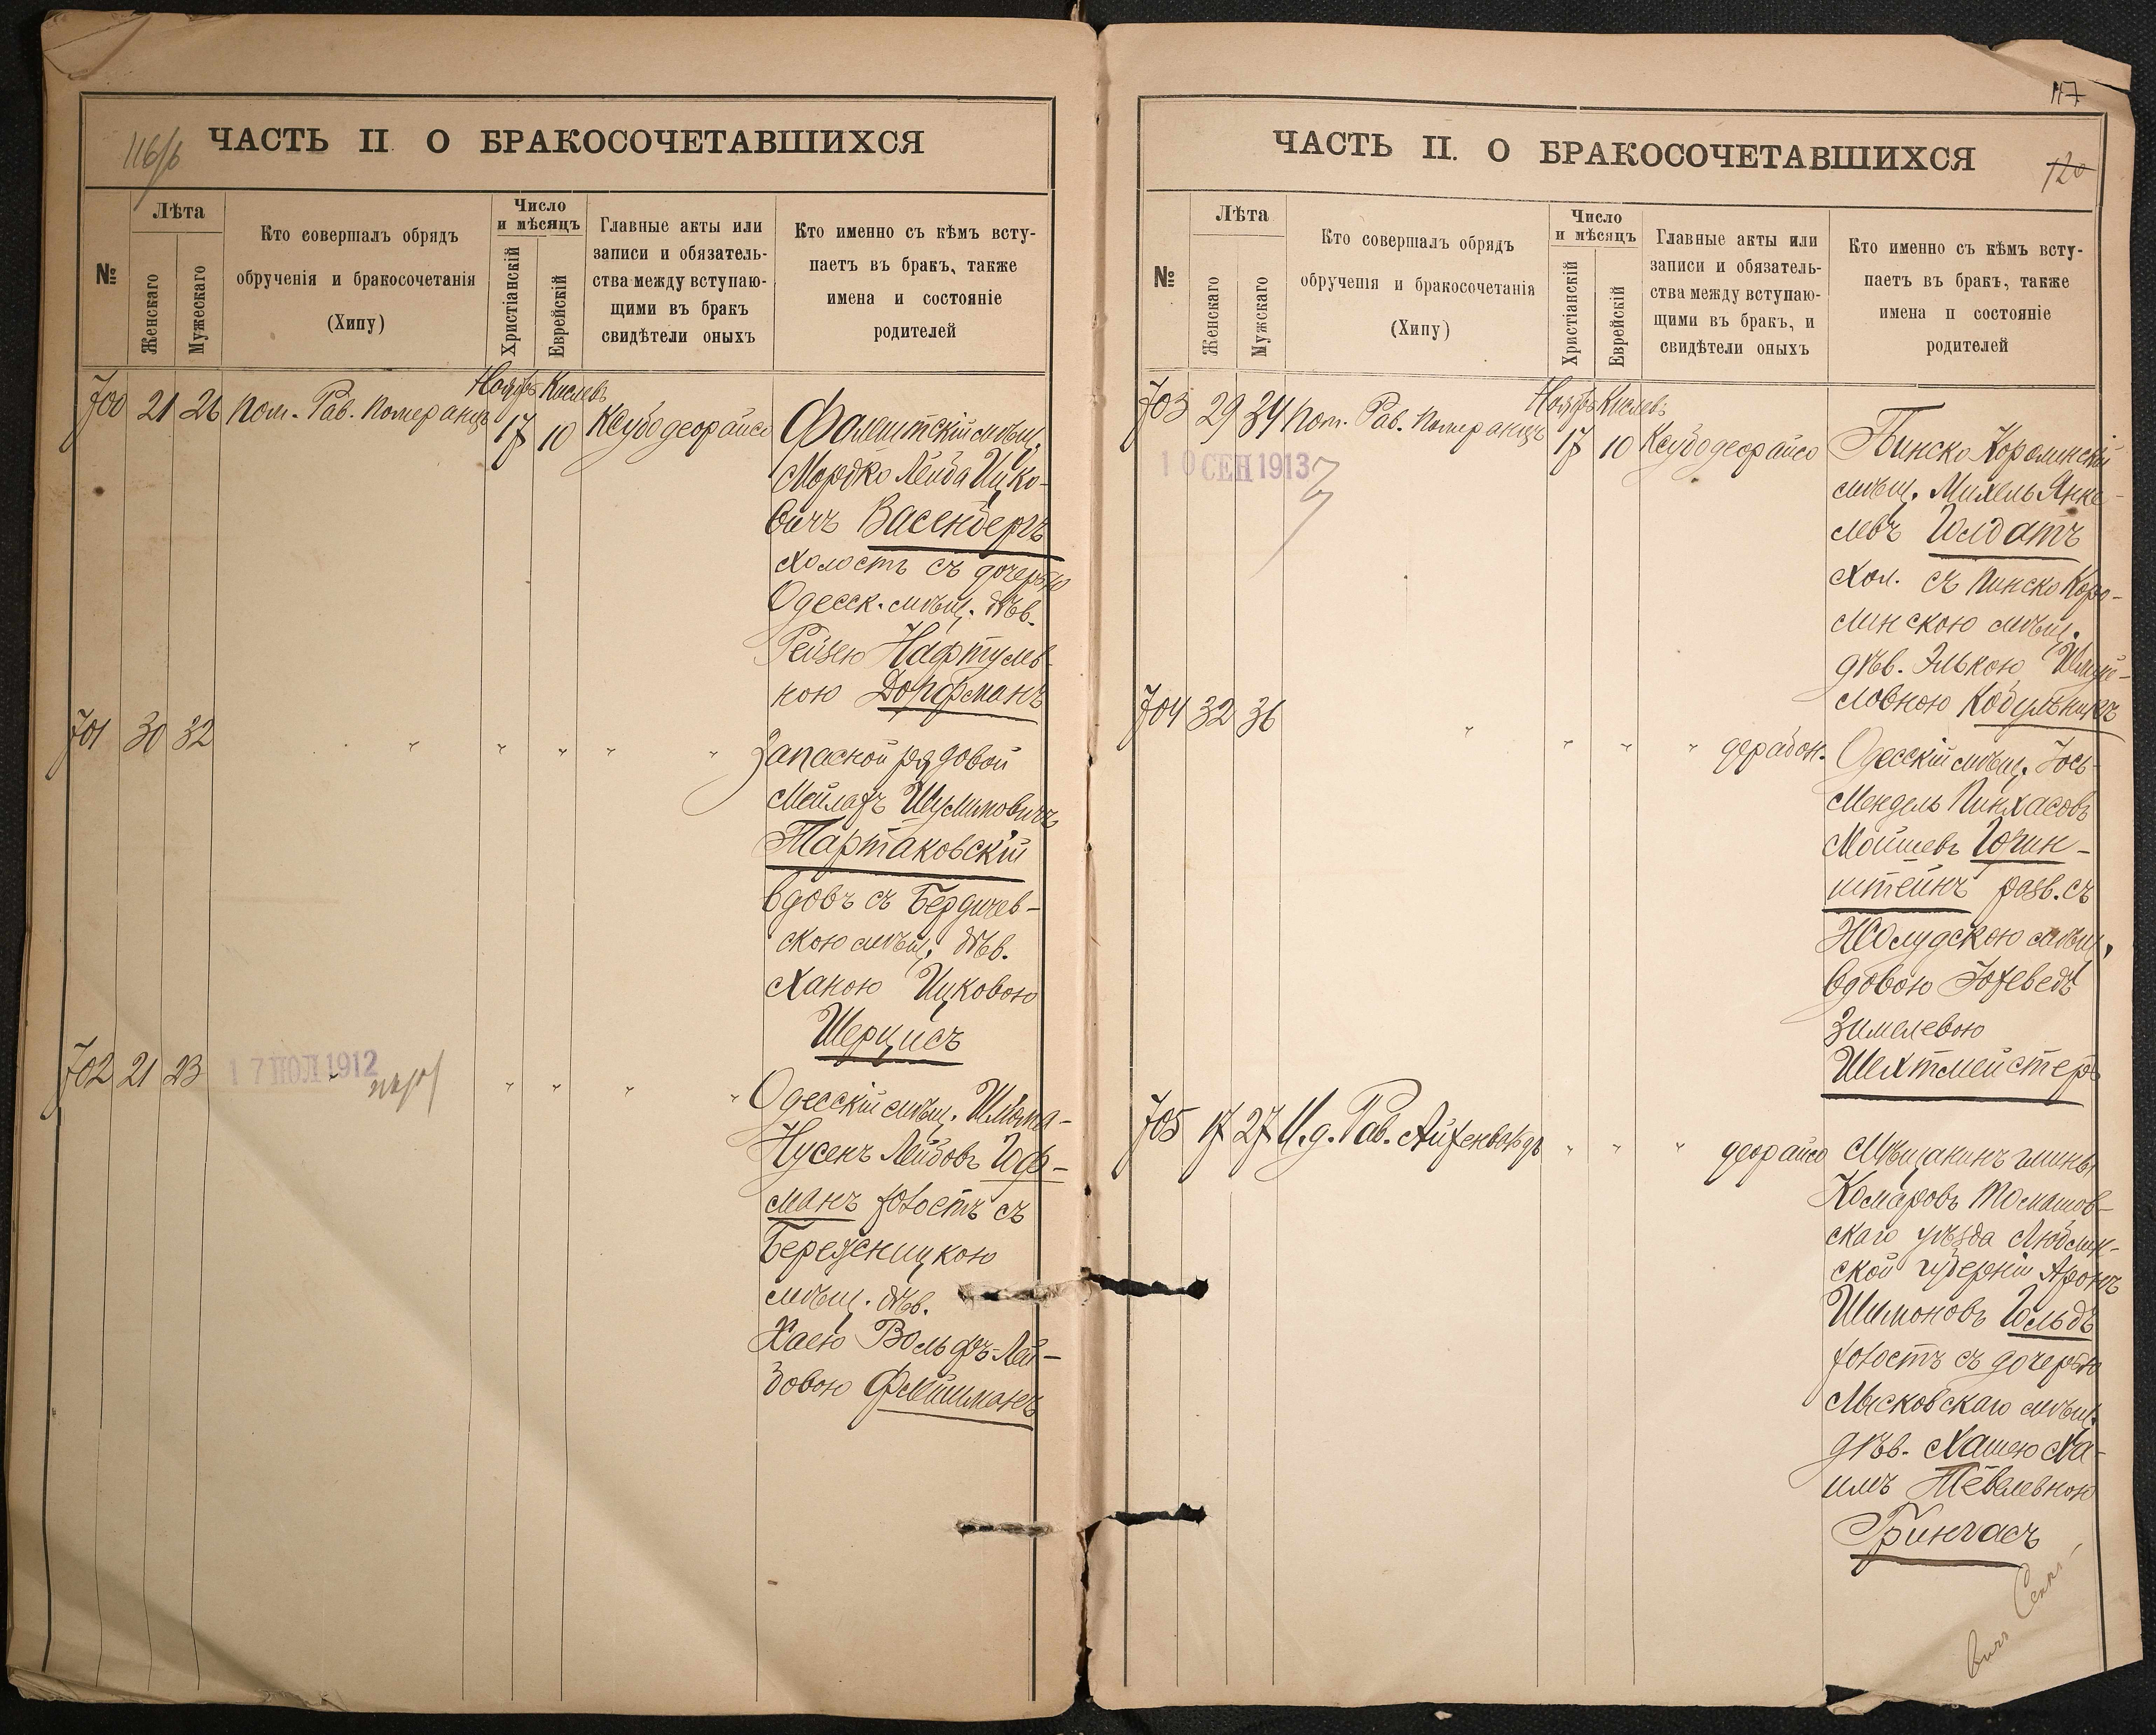 116/б
ЧАСТЬ II О БРАКОСОЧЕТАВШИХСЯ
№
Лѣта
Женскаго
Мужескаго
Кто совершалъ обрядъ
обрученія и бракосочетанія
(Хипу)
Число
и мѣсяцъ
Христіанскій
Еврейскій
Главные акты или
записи и обязатель-
ства между вступаю-
щими въ бракъ
свидѣтели оныхъ
Кто именно съ кѣмъ всту-
паетъ въ бракъ, также
имена и состояніе
родителей
Ноябрь Кислевъ
700 21 26 Пом. Рав. Померанцъ 17 10 Ксубо деорайсо
мѣщ.
Мордко Лейба Ицко-
вичъ Васенбергъ
холостъ съ дочерью
Одесск. мѣщ. дѣв.
Рейзею Нафтулев-
ною Дорфманъ
701 30 32 " " " " "
Запасной рядовой
Мейлахъ Шулимовичъ
Тартаковскій
вдовъ съ Бердичев-
скою мѣщ. дѣв.
Ханою Ицковою
Шерцисъ
702 21 23 17 ІЮЛ 1912 " " " " "
Одесскій мѣщ. Шлома-
Нусенъ Лейбовъ Гоф-
манъ холостъ съ
Березницкою
мѣщ. дѣв.
Хаею Вольфъ-Лей-
бовою Флейшманъ
117
120
ЧАСТЬ II. О БРАКОСОЧЕТАВШИХСЯ
№
Лѣта
Женскаго
Мужскаго
Кто совершалъ обрядъ
обрученія и бракосочетанія
(Хипу)
Число
и мѣсяцъ
Христіанскій
Еврейскій
Главные акты или
записи и обязатель-
ства между вступаю-
щими въ бракъ, и
свидѣтели оныхъ
Кто именно съ кѣмъ всту-
паетъ въ бракъ, также
имена и состояніе
родителей
Ноябрь Кислевъ
703 29 34 Пом. Рав. Померанцъ 17 10 Ксубо деорайсо
10 СЕН 1913
Пинско Каролинскій
мѣщ. Михель Янке-
левъ Голдатъ
хол. съ Пинско Каро-
линскою мѣщ.
дѣв. Элькою Шмуй-
ловною Кобульницкъ
704 32 36 " " " " дерабон.
Одесскій мѣщ. Іось-
Мендель Пинхасовъ
Мойшевъ Гочин-
штейнъ разв. съ
Жолудскою мѣщ.
вдовою Іохеведъ
Зимелевою
Шехтмейстеръ
705 17 27 И. д. Рав. Айхенвальдъ " " " деорайсо
Мѣщанинъ гмины
Комаровъ Томашов-
скаго уѣзда Люблин-
ской губерніи Аронъ
Шимоновъ Гольдъ
холостъ съ дочерью
Лысковскаго мѣщ.
дѣв. Хашею Ха-
имъ Тевелевною
Грингасъ